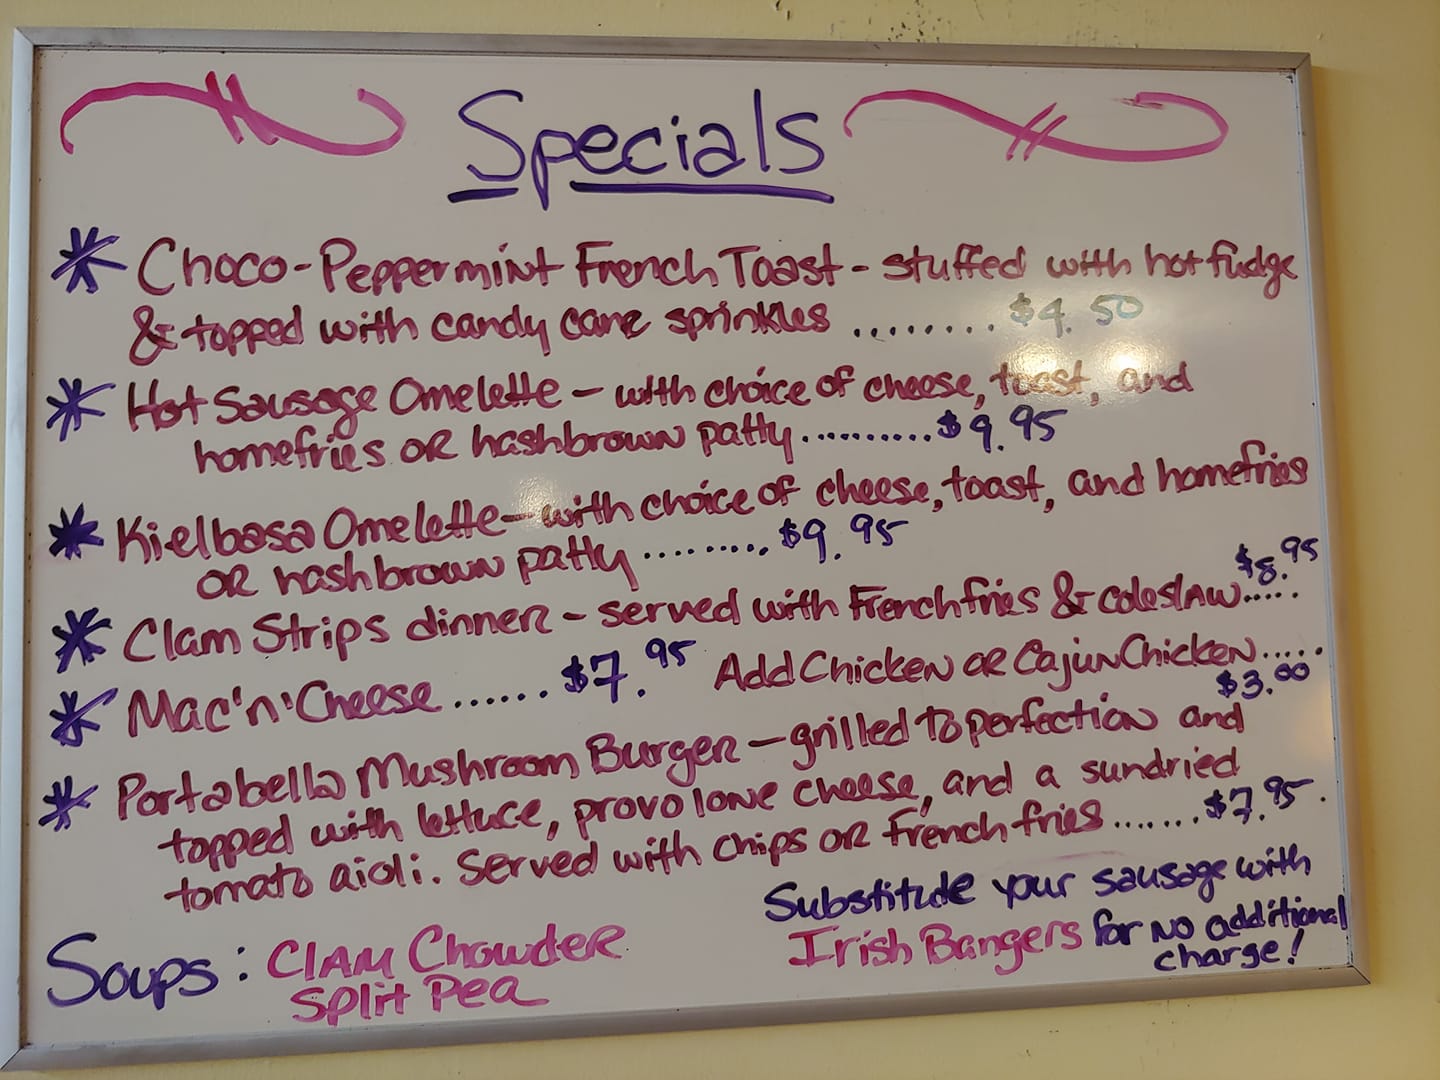 Specials
* Choco-Peppermint French Toast - stuffed with hot fudge
& topped with candy cane sprinkles ........ $4.50
* Hot Sausage Omelette - with choice of cheese, toast, and
homefries OR hashbrown patty.......... $9.95
* Kielbasa Omelette - with choice of cheese, toast, and homefries
OR hashbrown patty ......... $9.95
* Clam Strips dinner - served with French fries & coleslaw..... $8.95
* Mac'n'Cheese ...... $7.95 Add Chicken OR Cajun Chicken..... $3.00
* Portabella Mushroom Burger - grilled to perfection and
topped with lettuce, provolone cheese, and a sundried
tomato aioli. Served with chips OR french fries ....... $7.95.
Substitute your sausage with
Irish Bangers for no additional
charge!
Soups: Clam Chowder
Split Pea